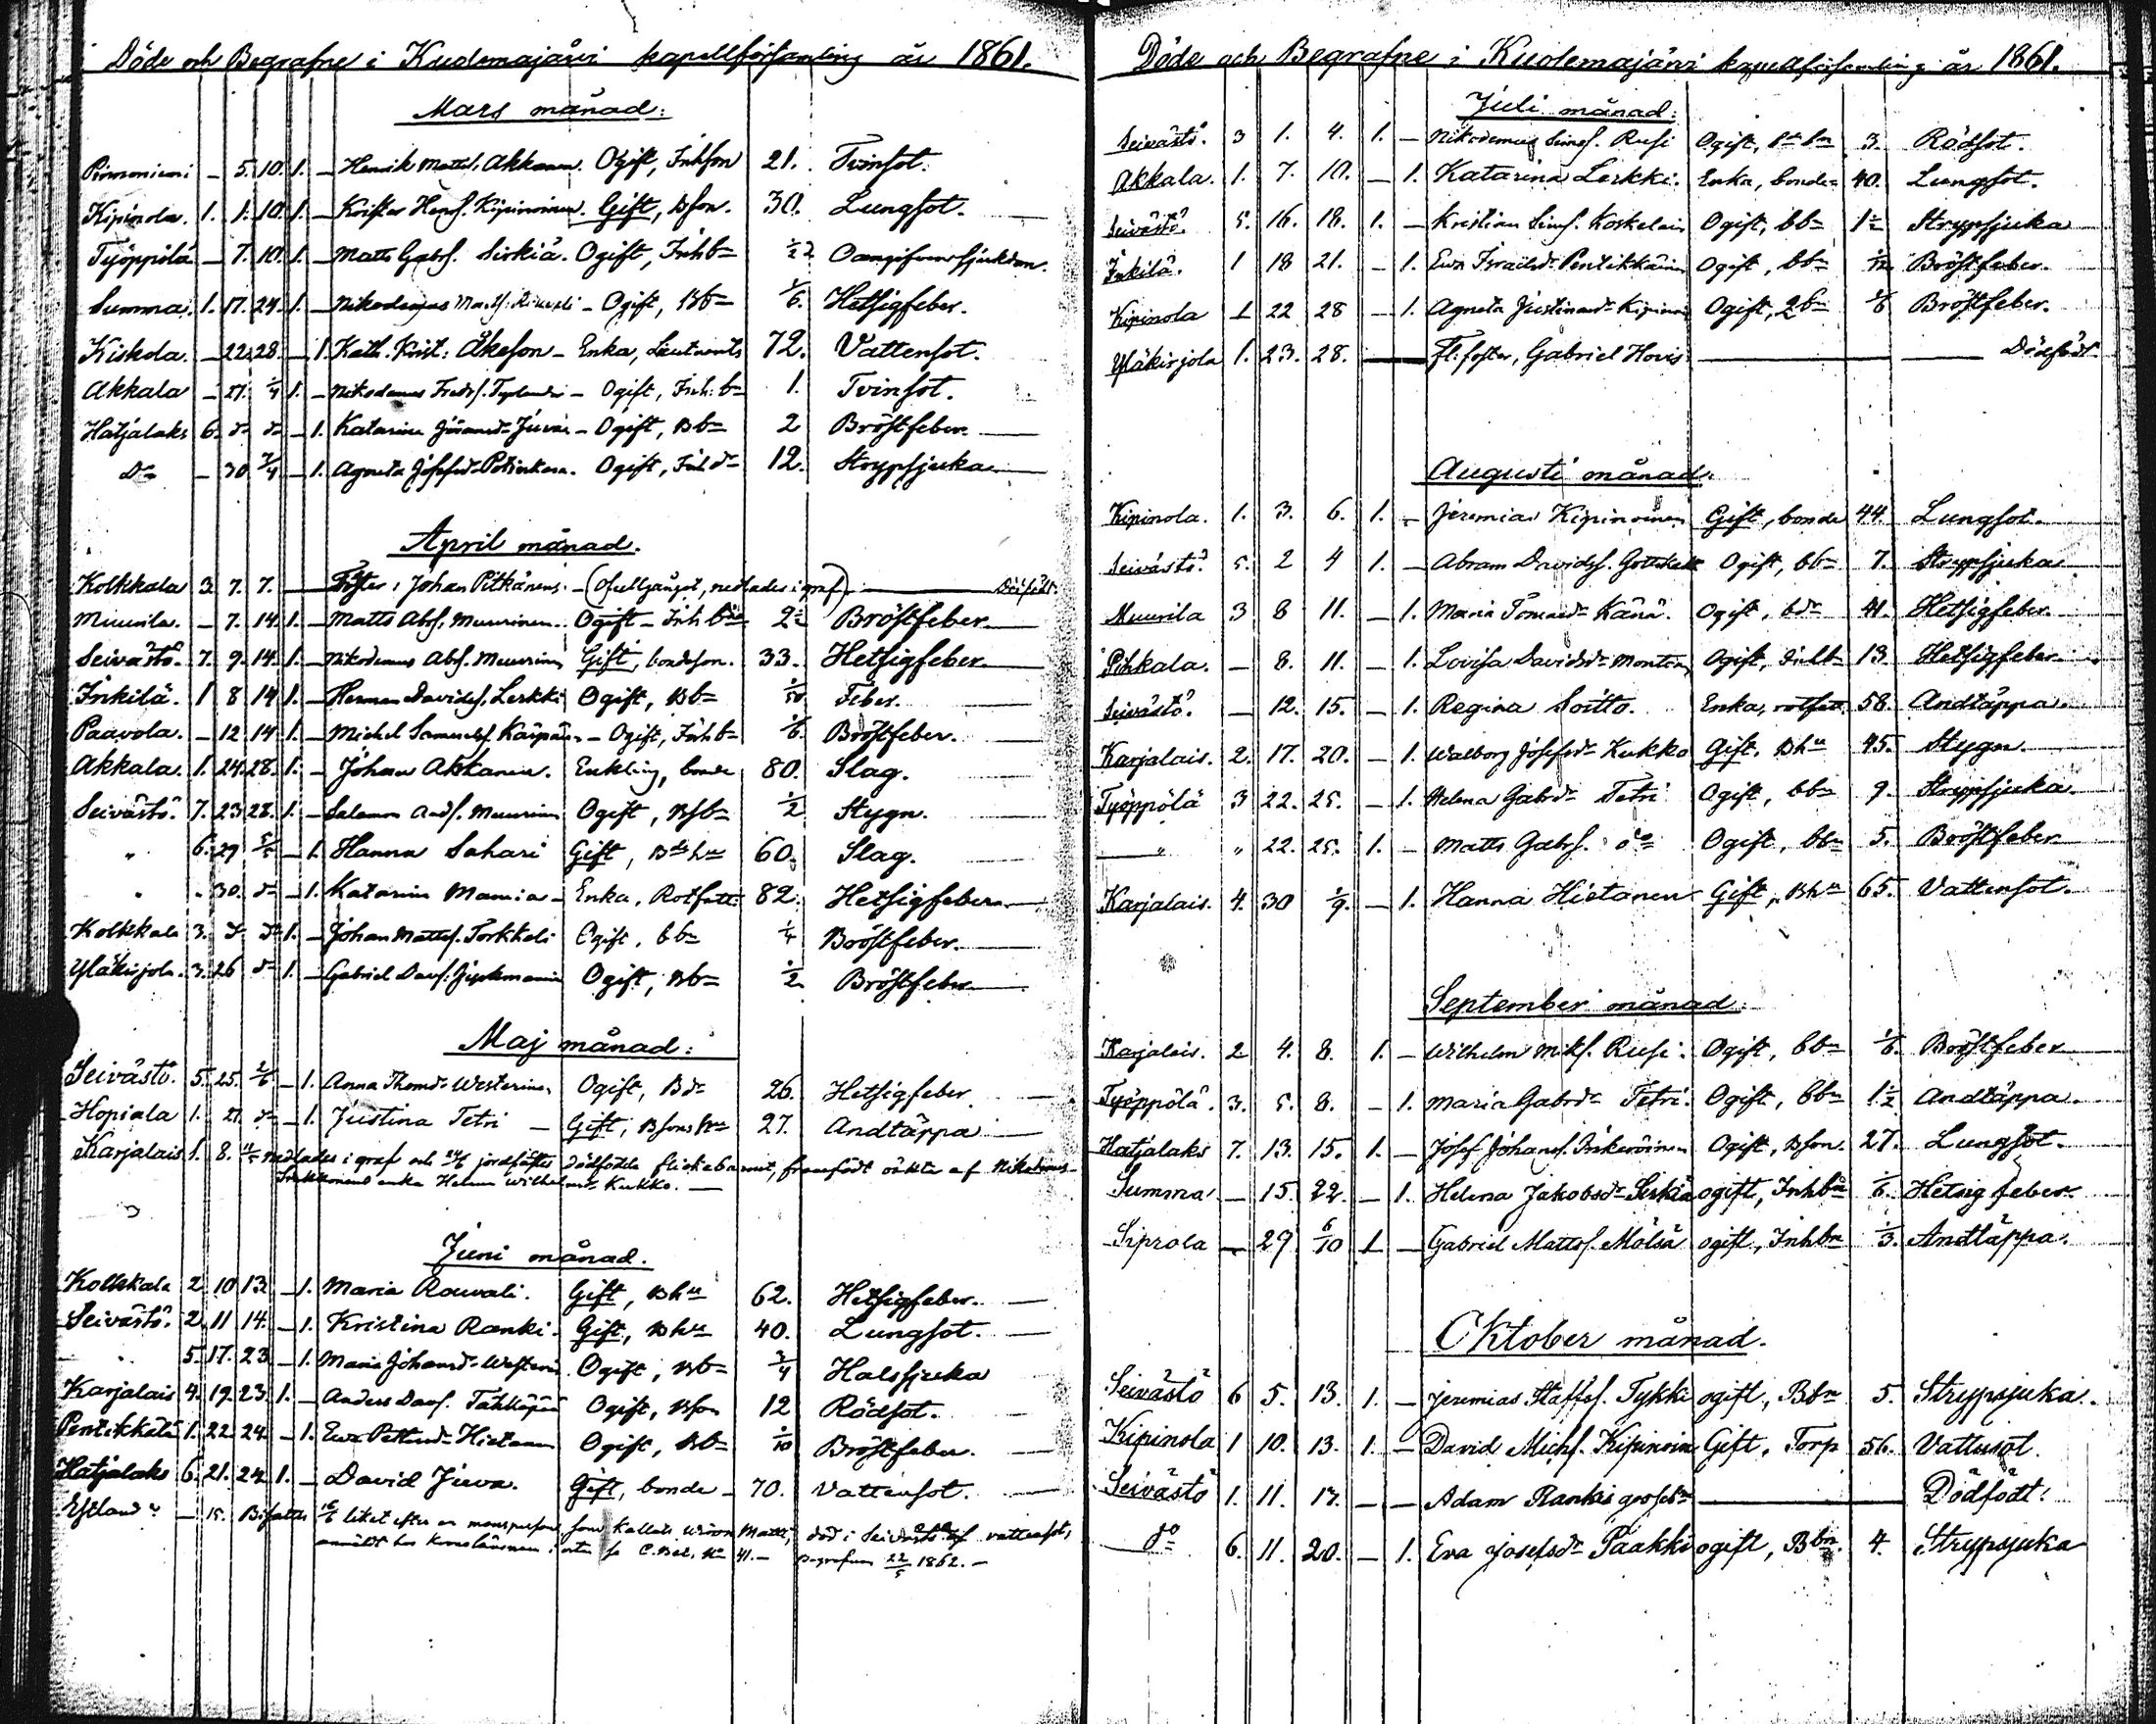 Döde och Begrafne i Kuolemajärvi kapellförsamling år 1861.
Mars månad:
- 5. 10. 1. - Henrik Matts. Akkanen. Ogift, Inhson 21. Tvinsot.
Kipinola. 1. 1. 10. 1. - Krister Hens. Kipinoinen. Gift, Bson. 30. Lungsot.
Työppölä - 7. 10. 1. - Matts Gabs. Sirkiä. Ogift, Inhbn 1/2
Summa. 1. 17. 24. 1. - Nikodemus Ogift, Bbn 1/6. Hetsigfeber.
Kiskola. - 22. 28. - 1. Kath. Krist. Åkeson - Enka, Lieutnants 72. Vattensot.
Akkala - 27. 1/4 1. - Nikodemus Ogift, Inh. bn 1. Tvinsot.
Hatjalaks 6. dn dn - 1. Katarina Juva - Ogift, Bbn 2 Bröstfeber.
Dn - 30 7/4 - 1. Agneta Josefsdr Ogift, Inh dr 12. Strypsjuka
April månad.
Kolkkala 3. 7. 7. - Foster, Johan Pitkänens. (ofullgånget, nedlades i graf) Dödfödt.
Muurila. - 7. 14. 1. - Matts Abs. Muurinen. Ogift - Inh. bn 2 Bröstfeber
Seivästö. 7. 9. 14. 1. - Nikodemus Abs. Muurinen Gift, bondeson. 33. Hetsigfeber
Inkilä. 1 8 14 1. - Herman Davids. Lerkki Ogift, Bbn Feber.
Paavola. - 12 14 1. - Michel Samuels. Ogift, Inhbn 1/6. Bröstfeber.
Akkala. 1. 24. 28. 1. - Johan Akkanen. Enkling, bonde 80. Slag.
Seivästö. 7. 23 28. 1. - Salomon Ands. Muurinen Ogift, 1/2 Stygn.
" 6. 29 5/5 - 1. Hanna Sohari Gift, 60. Slag.
" . 30. dn - 1. Katarina Mamia - Enka, Rotfatt. 82. Hetsigfeber
Kolkkala 3. dn dn 1. - Johan Matts. Torkkeli Ogift, bbn 1/4 Bröstfeber.
Yläkirjola. 3. 26 dn 1. - Gabriel Davs. Ogift, Bbn 1/2 Bröstfeber
Maj månad:
Seivästö. 5. 25. 2/6 - 1. Anna Thomdr Westerinen Ogift, Bdr 26. Hetsigfeber
Hopiala 1. 27. dn - 1. Justina Tetri - Gift, Bsons hu 27. Andtäppa
Karjalais 1. 8. nedlades i graf och jordfästes dödfödda flickebarnet, framfödt af Nikodemus
enka Helena Wilhelmsdr Kukko.
Juni månad.
Kolkkala 2 10 13 - 1. Maria Rouvali. Gift, Bhu 62. Hetsigfeber.
Seivästö. 2. 11 14. - 1. Kristina Ranki. Gift, Bhu 40. Lungsot.
" 5. 17. 23 - 1. Maria Johansdr Ogift, Bbn 3/4 Halssjuka
Karjalais 4. 19. 23 1. - Anders Davs. Tähkäpää Ogift, Bson 12 Rödsot.
Pentikkälä 1. 22. 24. - 1. Eva Hietanen Ogift, Bbn 1/10 Bröstfeber.
Hatjalaks 6. 21. 24 1. - David Juva. Gift, bonde - 70. Vattensot.
Estland - 15. Bisattes liket efter en mansperson som kallats Matts, död i Seivästö af vattensot,
anmäldt hos Kronolänsman 41. - Begrafven 22/5 1862. -
Döde och Begrafne i Kuolemajärvi kapellförsamling år 1861.
Juli månad:
Seivästö. 3 1. 4. 1. - Nikodemus Sims. Rusi Ogift, 3. Rödsot.
Akkala. 1. 7. 10. - 1. Katarina Lerkki. Enka, bonde- 40. Lungsot.
Seivästö. 5. 16. 18. 1. - Kristian Sims. Koskelain Ogift, bbn 1 1/2 Strypsjuka
Inkilä. 1 18 21. - 1. Eva Israelsdr Pentikkäinen Ogift, bbn 1/12 Bröstfeber.
Kipinola 1 22 28 - 1. Agneta Justinasdr Kipinoin Ogift, 1/6 Bröstfeber.
Yläkirjola 1. 23. 28. Fl. foster, Gabriel Hovis Dödfödt
Augusti månad.
Kipinola. 1. 3. 6. 1. - Jeremias Kipinoinen Gift, bonde 44. Lungsot.
Seivästö. 5. 2 4 1. - Abram Davids. Ogift, bbn 7. Strypsjuka
Muurila 3 8 11. - 1. Maria Tomasdr Känä. Ogift, bdr 41. Hetsigfeber.
Pihkala. - 8. 11. - 1. Lovisa Davidsdr Ogift, Inhbn 13 Hetsigfeber
Seivästö. - 12. 15. - 1. Regina Soitto. Enka, rotfatt. 58. Andtäppa.
Karjalais. 2. 17. 20. - 1. Walborg Josefsdr Kukko Gift. Bhu 45. Stygn.
Työppölä 3 22. 25. - 1. Helena Gabrdr Tetri Ogift, bbn 9. Strypsjuka.
" " 22. 25. 1. - Matts Gabs. do Ogift, bbn 5. Bröstfeber
Karjalais. 4. 30 1/9. - 1. Hanna Hietanen Gift, Bhu 65. Vattensot.
September månad:
Karjalais. 2 4. 8. 1. - Wilhelm Miks. Rusi. Ogift, bbn 1/6. Bröstfeber
Työppölä. 3. 5. 8. - 1. Maria Gabrdr Tetri. Ogift, bbn 1 1/2 Andtäppa.
Hatjalaks 7. 13. 15. 1. - Josef Johans. Inkeroinen Ogift, Bson. 27. Lungsot.
Summa - 15. 22. - 1. Helena Jakobsdr Sirkiä ogift, Inhbn 1/6. Hetsig feber.
Siprola - 29 6/10 1 - Gabriel Matts. Mölsä ogift, Inhbn 1/3. Andtäppa.
Oktober månad.
Seivästö 6 5. 13. 1. - Jeremias Staffs. Tykki ogift, Bbn 5. Strypsjuka.
Kipinola 1 10. 13. 1. - David Michs. Kipinoin Gift, Torp 56. Vattusot.
Seivästö 1. 11. 17. - - Adam Rankis gossebn Dödfödt.
do 6. 11. 20. - 1. Eva Josefsdr Paakki ogift, Bbn. 4. Strypsjuka